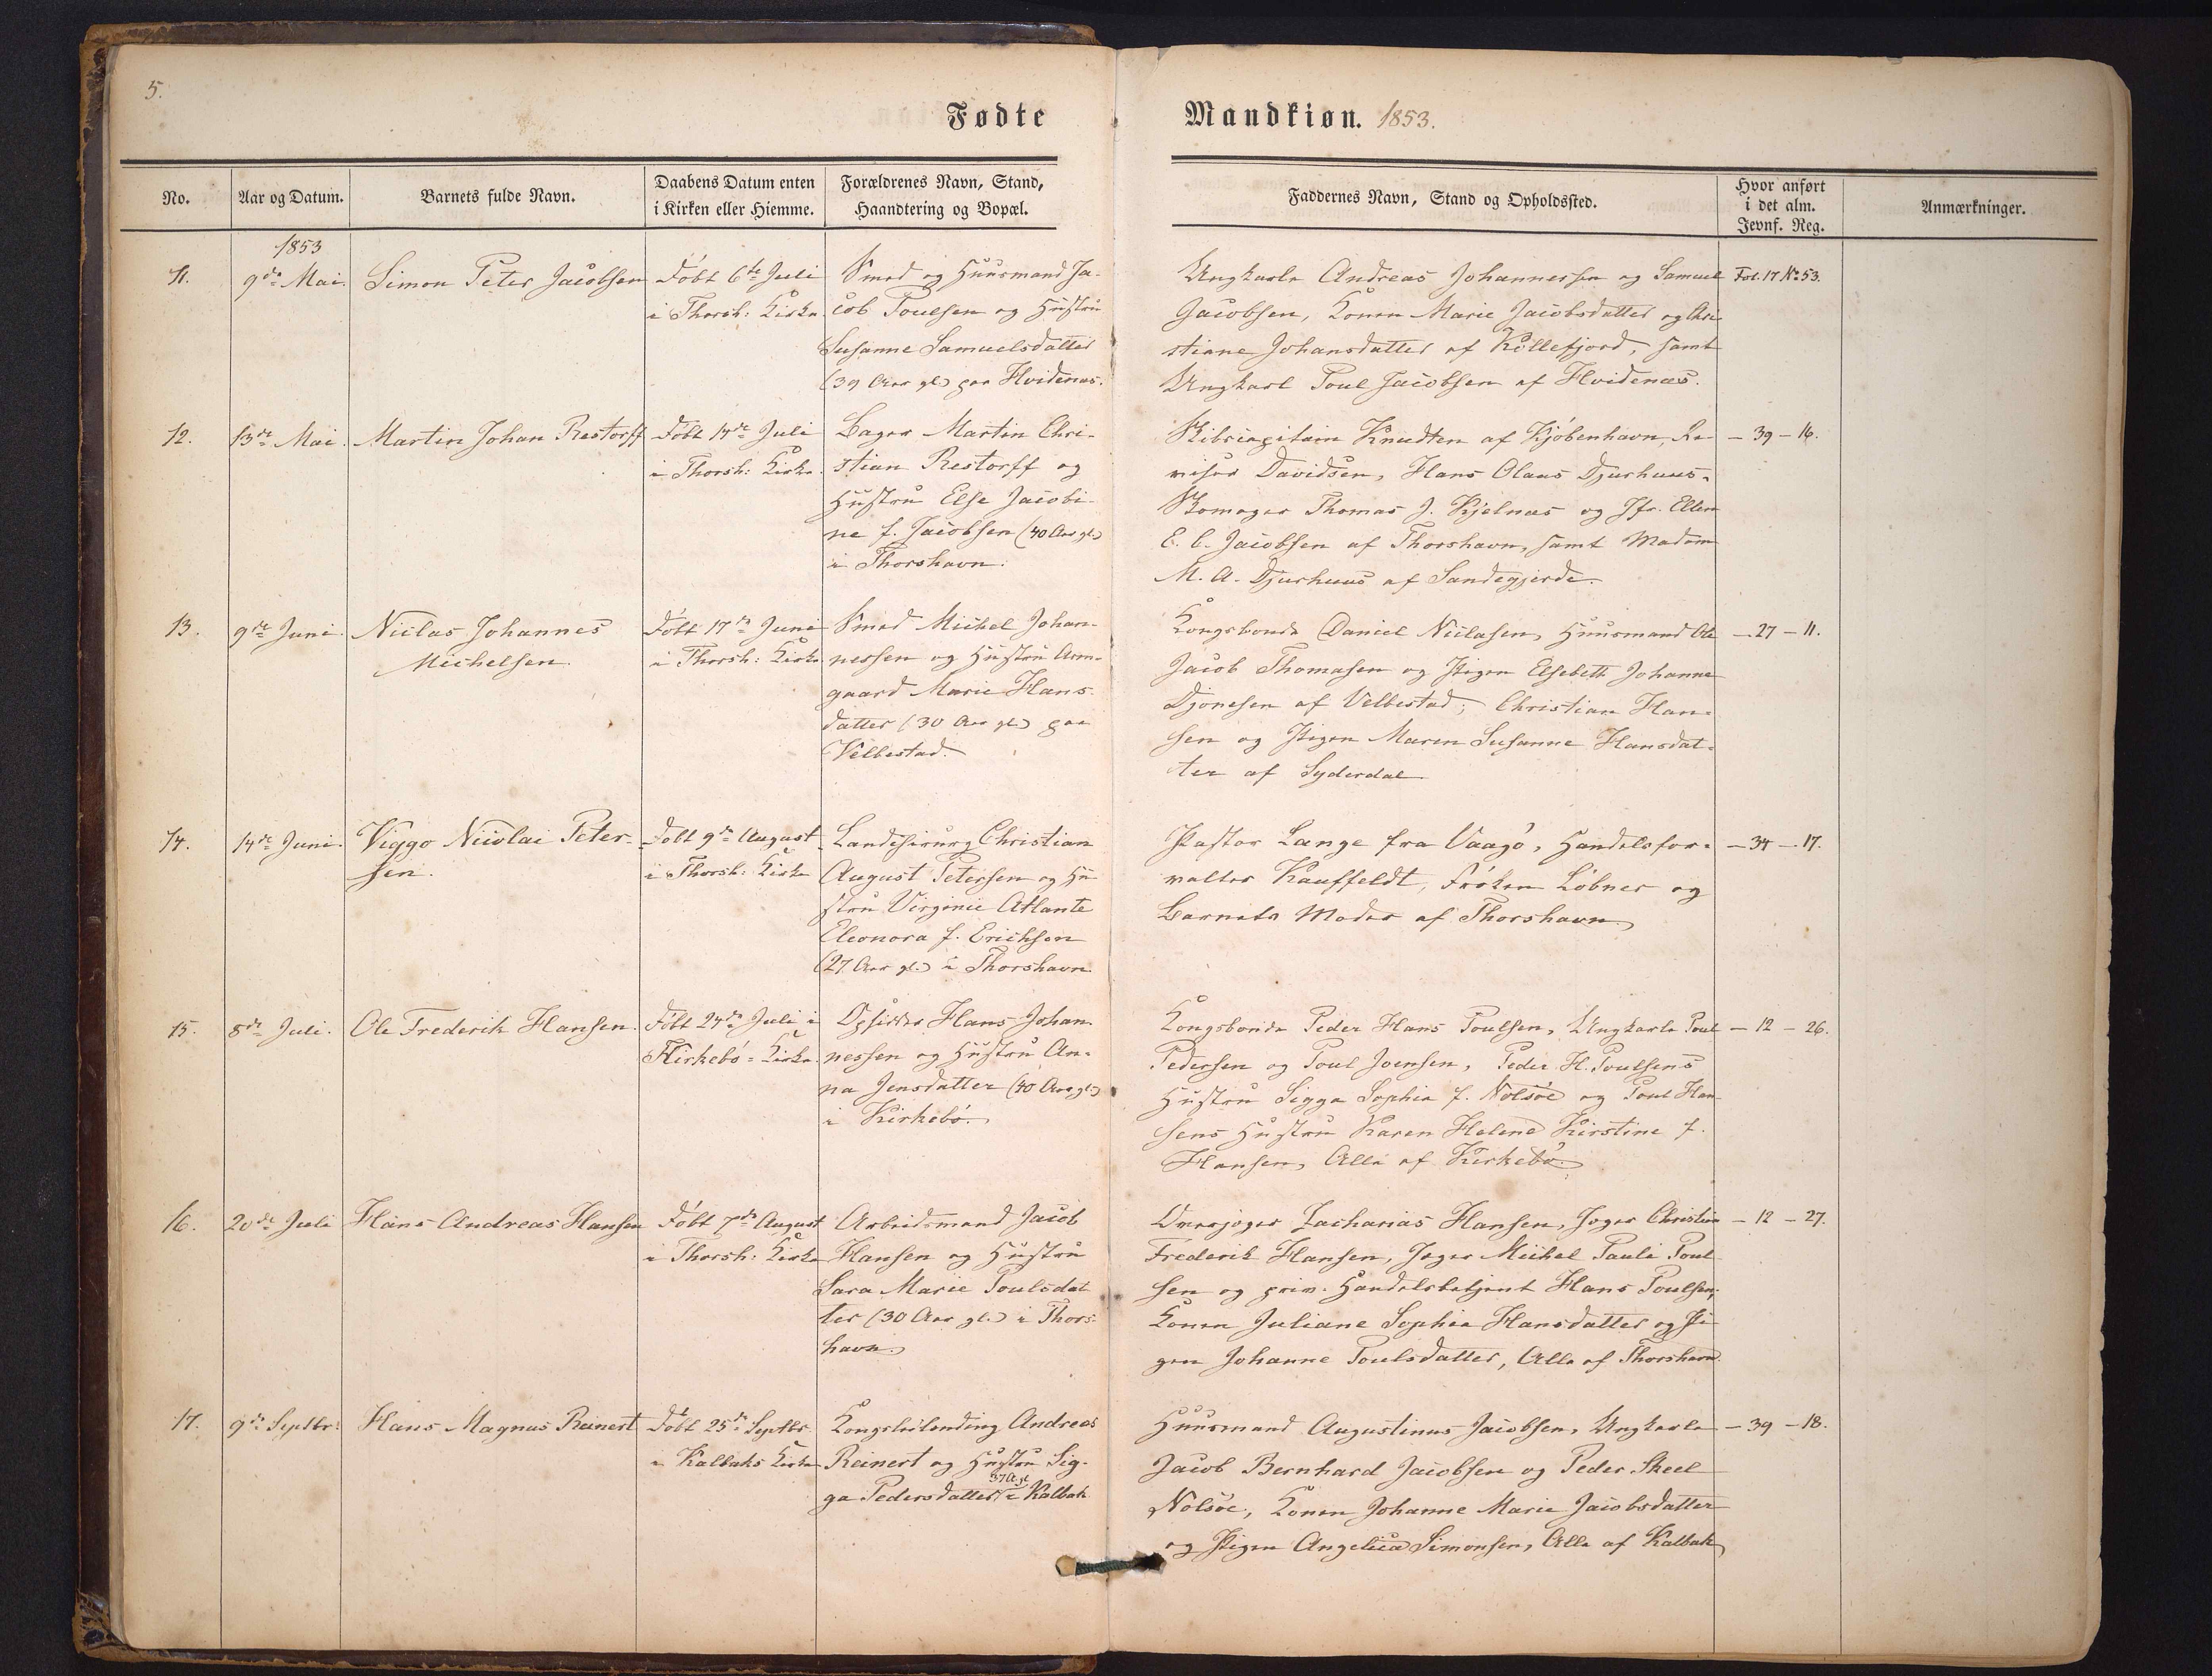 5.
Fødte
Mandkiøn. 1853.
No.
Aar og Datum.
Barnets fulde Navn.
Daabens Datum enten
i Kirken eller Hiemme.
Forældrenes Navn, Stand,
Haandtering og Bopæl.
Faddernes Navn, Stand og Opholdssted.
Hvor anført
i det alm.
Jevnf. Reg.
Anmærkninger.
1853
11.
9de Mai.
Simon Peter Jacobsen
Døbt 6te Juli
i Thorsh: Kirke.
Smed og Huusmand Ja-
cob Poulsen og Hustru
Susanne Samuelsdatter
(39 Aar gl.) paa Hvidenæs.
Ungkarle Andreas Johannessen og Samuel
Jacobsen, Konen Marie Jacobsdatter og Chri
stiane Johansdatter af Kollefjord, samt
Ungkarl Poul Jacobsen af Hvidenæs.
Fol. 17 No 53.
12.
13de Mai.
Martin Johan Restorff
Døbt 14de Juli
i Thorsh: Kirke.
Bager Martin Chri-
stian Restorff og
Hustru Else Jacobi-
ne f. Jacobsen (40 Aar gl.)
i Thorshavn.
Skibscapitain Knudten af Kjøbenhavn, Re-
visor Davidsen, Hans Olaus Djurhuus,
Skomager Thomas J. Kjelnæs og Jfr. Ellen
E. C. Jacobsen af Thorshavn, samt Madam
M. A. Djurhuus af Sandegjerde.
- 39 - 16.
13.
9de Juni.
Niclas Johannes
Michelsen.
Døbt 17de Juni
i Thorsh: Kirke
Smed Michel Johan-
nessen og Hustru Arm-
gaard Marie Hans-
datter (30 Aar gl.) paa
Velbestad.
Kongsbonde Daniel Niclasen, Huusmand Ole
Jacob Thomasen og Pigen Elsebeth Johanne
Djonesen af Velbestad; Christian Han-
sen og Pigen Maren Susanne Hansdat-
ter af Syderdal.
- 27 - 11.
14.
14de Juni.
Viggo Nicolai Peter-
sen.
Døbt 9de August
i Thorsh: Kirke
Landchirurg Christian
August Petersen og Hu
stru Virginie Atlante
Eleonora f. Erichsen
(27 Aar gl.) i Thorshavn
Pastor Lange fra Vaagø, Handelsfor-
valter Kauffeldt, Frøken Løbner og
Barnets Moder af Thorshavn.
- 34 - 17.
15.
8de Juli.
Ole Frederik Hansen.
Døbt 24de Juli i
Kirkebø-Kirke.
Opsidder Hans Johan-
nessen og Hustru An-
na Jensdatter (40 Aar gl.)
i Kirkebø.
Kongsbonde Peder Hans Poulsen, Ungkarle Poul
Pedersen og Poul Joensen, Peder H. Poulsens
Hustru Sigga Sophia f. Nolsøe og Poul Han
sens Hustru Karen Helene Kirstine f.
Hansen, Alle af Kirkebø.
- 12 - 26.
16.
20de Juli
Hans Andreas Hansen
Døbt 7de August
i Thorsh: Kirke
Arbeidsmand Jacob
Hansen og Hustru
Sara Marie Poulsdat
ter (30 Aar gl.) i Thors-
havn.
Overjæger Zacharias Hansen, Jæger Christian
Frederik Hansen, Jæger Michel Pauli Poul
sen og priv. Handelsbetjent Hans Poulsen;
Konen Juliane Sophia Hansdatter og Pi
gen Johanne Poulsdatter, Alle af Thorshavn.
- 12 - 27.
17.
9de Septbr:
Hans Magnus Reinert
Døbt 25de Septbr.
i Kalbaks Kirke
Andreas
Reinert og Hustru Sig-
37 A. gl.
ga Pedersdatter i Kalbak
Huusmand Augustinus Jacobsen, Ungkarle
Jacob Bernhard Jacobsen og Peder Skeel
Nolsøe, Konen Johanne Marie Jacobsdatter
og Pigen Angelica Simonsen, Alle af Kalbak
- 39 - 18.